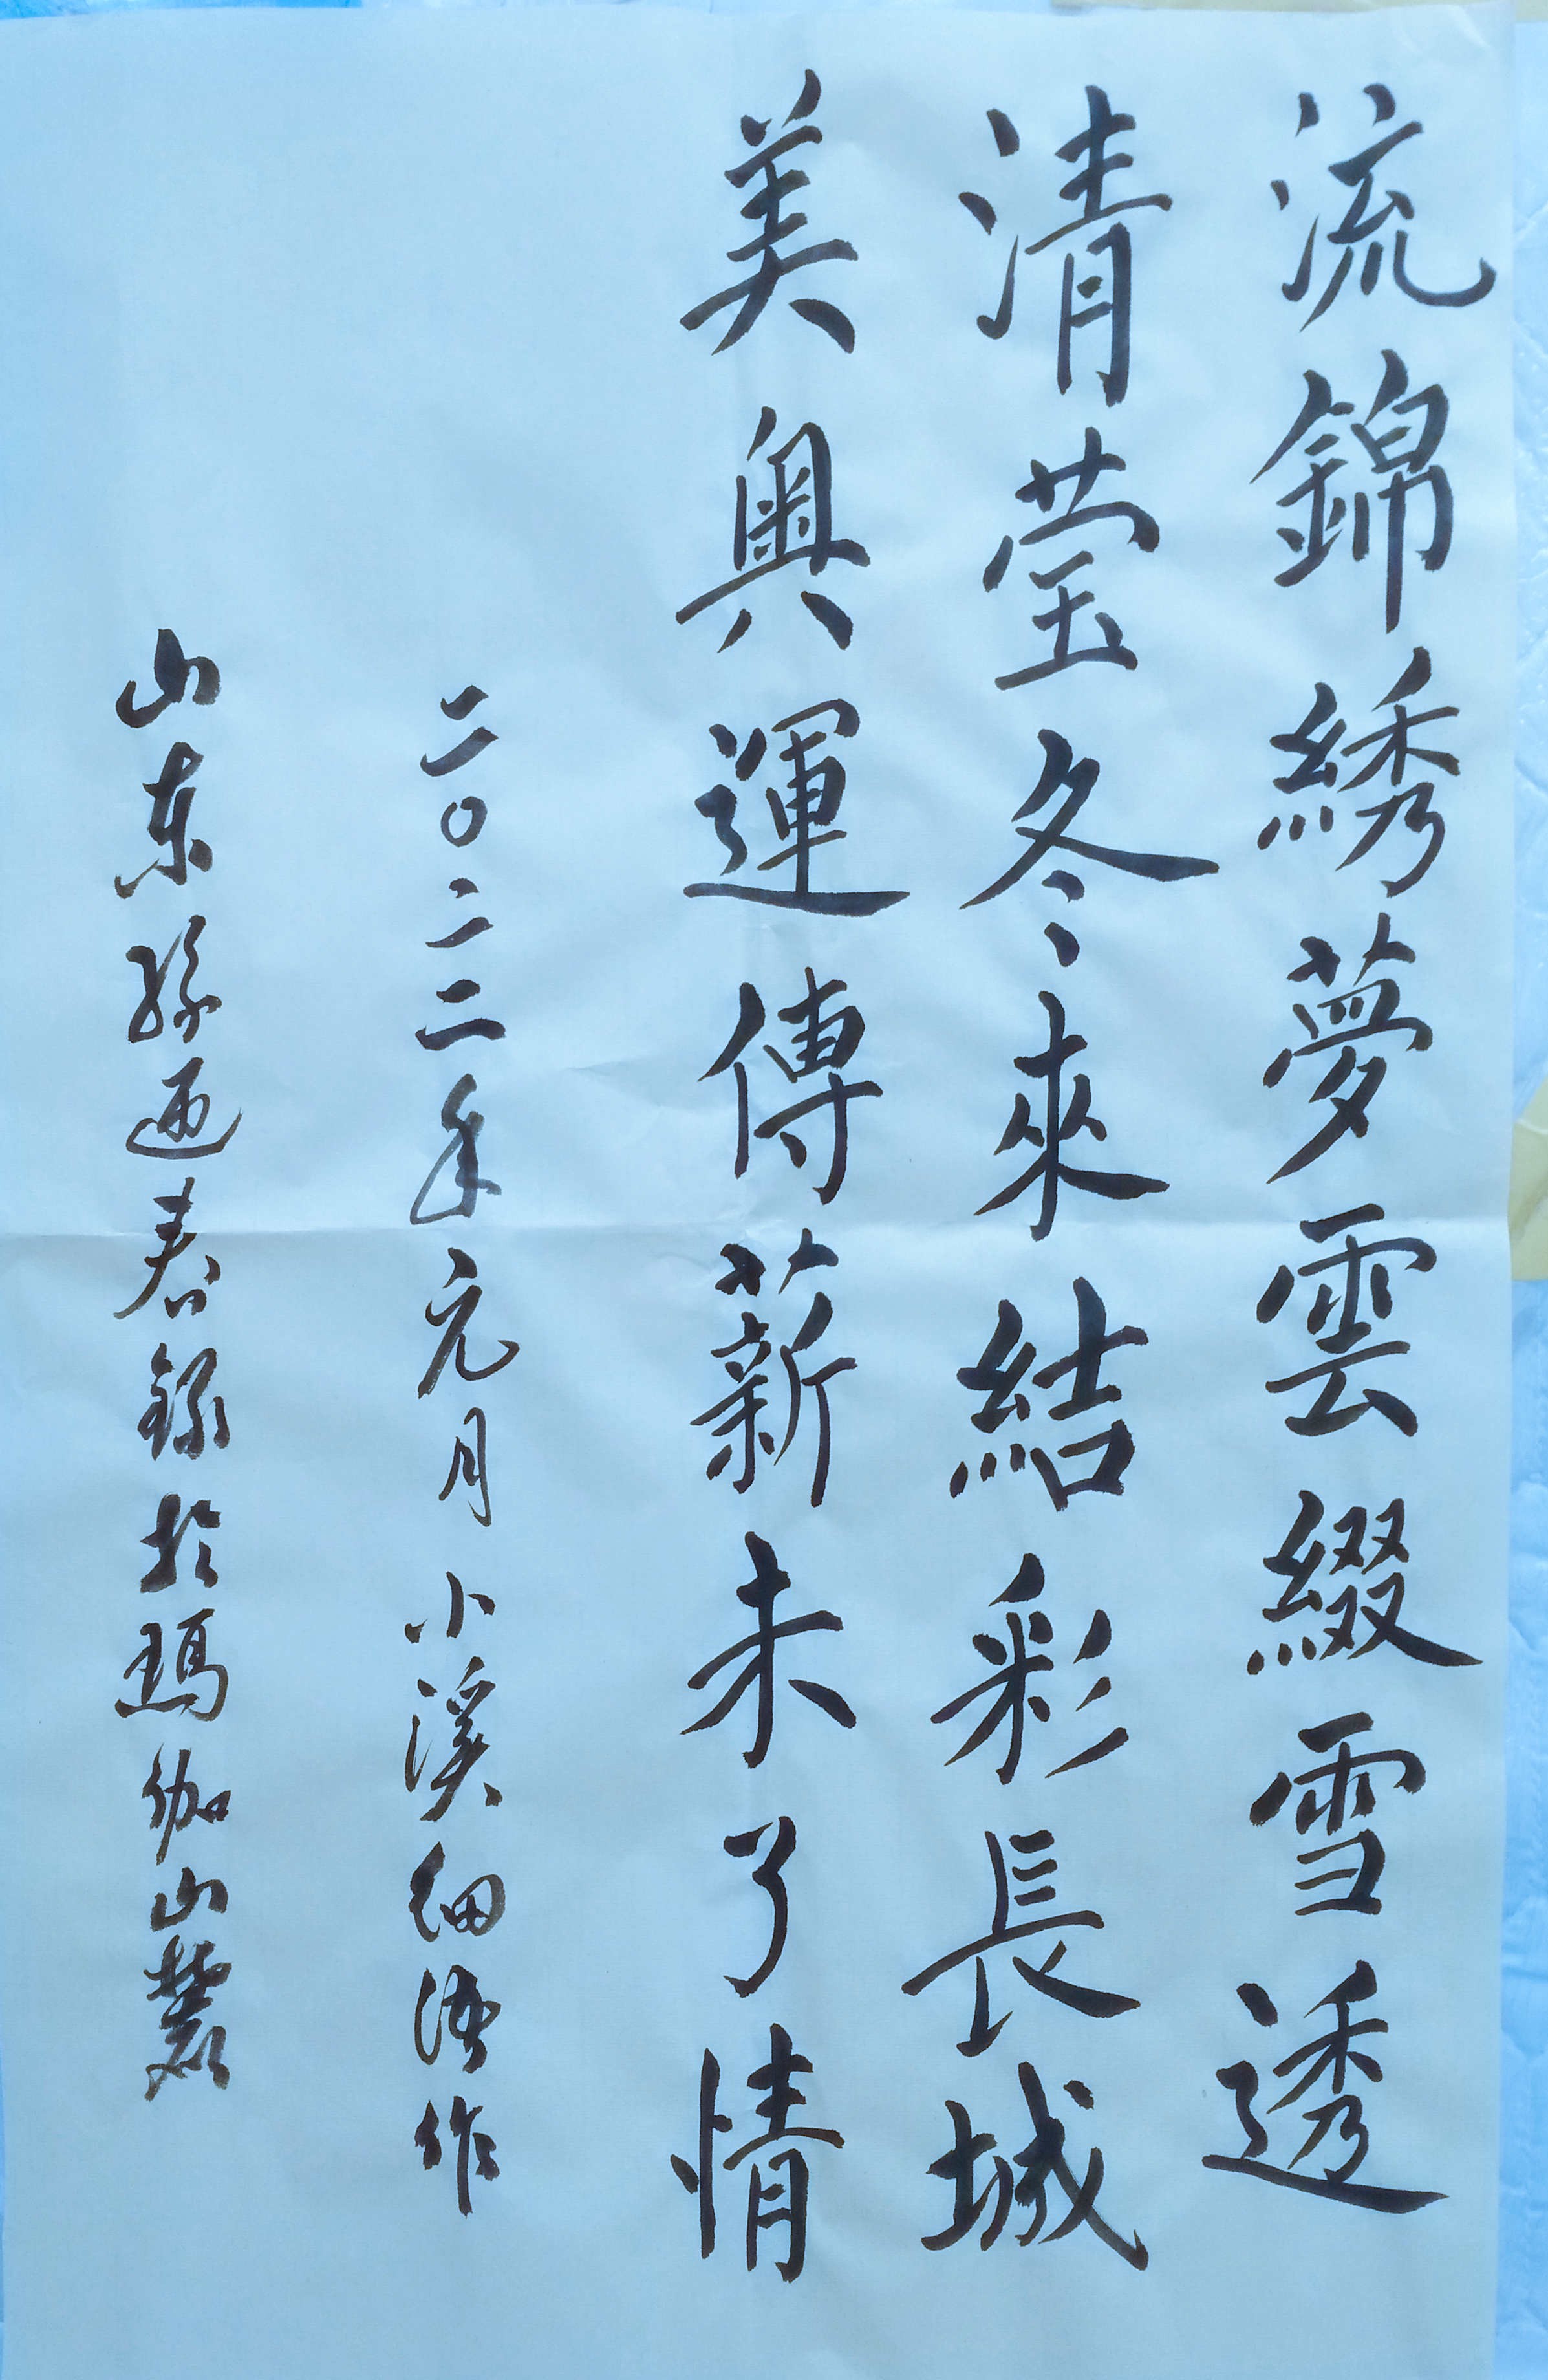 流錦綉夢雲綴雪透
清莹冬來結彩長城
美奥運傳薪未了情
二〇二二年元月小溪细語作
山东孫迺春録於瑪伽山麓